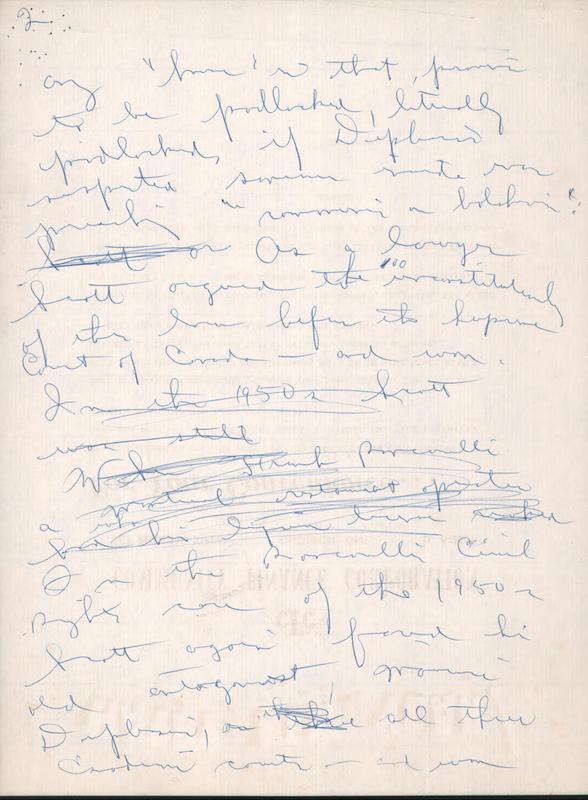 2
any "house" in that province
to be padlocked, literally
padlocked, if Duplessis
suspected someone inside was
preaching "communism or bolshevism".
Scott or As a lawyer
Scott argued the unconstitutionality
of the law before the Supreme
Court of Canada — and won.
In the 1950s Scott
was still
When Frank Roncarelli
a restaurant operator
had his liquor license
In the Roncarelli Civil
Rights case of the 1950s
Scott again faced his
old antagonist, Premier
Duplessis, in all three
Canadian courts — and won